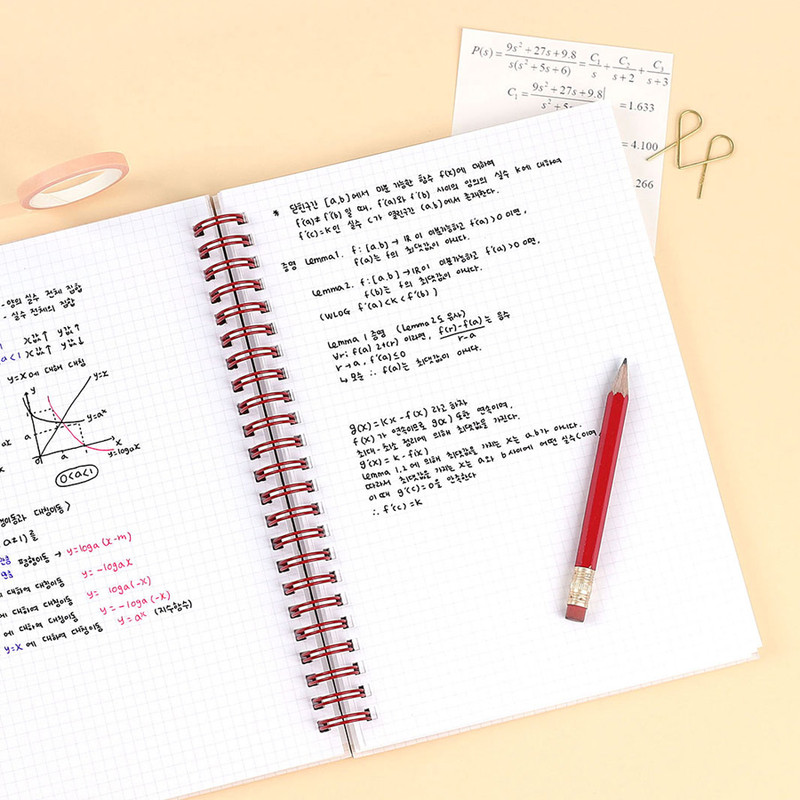 - 양의 실수 전체 집합
- 실수 전체의 집합
1 x값↑ y값↑
a<1 x값↑ y값↓
y=x에 대해 대칭
y
y=x
1
y=aˣ
a
0
a
1
x
y=logax
0<a<1
평행이동과 대칭이동>
a≠1)를
평행이동 → y=loga(x-m)
대하여 대칭이동 y=-logax
에 대하여 대칭이동 y=loga(-x)
에 대하여 대칭이동 y=-loga(-x)
y=x에 대하여 대칭이동 y=aˣ (지수함수)
* 닫힌구간 [a,b]에서 미분 가능한 함수 f(x)에 대하여
f'(a)≠f'(b) 일 때, f'(a)와 f'(b) 사이의 임의의 실수 k에 대하여
f'(c)=k인 실수 c가 열린구간 (a,b)에서 존재한다.
증명 Lemma 1. f:[a,b]→ℝ이 미분가능하고 f'(a)>0 이면,
f(a)는 f의 최댓값이 아니다.
Lemma 2. f:[a,b]→ℝ이 미분가능하고 f'(a)>0 이면,
f(b)는 f의 최댓값이 아니다.
(WLOG f'(a)<k<f'(b))
Lemma 1 증명 (Lemma 2도 유사)
∀r: f(a)≥f(r) 이라면, f(r)-f(a)/r-a 는 음수
r→a, f'(a)≤0
↳ 모순 ∴ f(a)는 최댓값이 아니다.
g(x)=kx-f(x) 라고 하자
f(x)가 연속이므로 g(x) 또한 연속이며,
최대·최소 정리에 의해 최댓값을 가진다.
g'(x)=k-f'(x)
Lemma 1,2에 의해 최댓값을 가지는 x는 a,b가 아니다.
따라서 최댓값을 가지는 x는 a와 b사이에 어떤 실수 c이며,
이 때 g'(c)=0을 만족한다
∴ f'(c)=k
P(s)= 9s²+27s+9.8/s(s²+5s+6) = C₁/s + C₂/s+2 + C₃/s+3
C₁= 9s²+27s+9.8|/s²+5s =1.633
=4.100
266